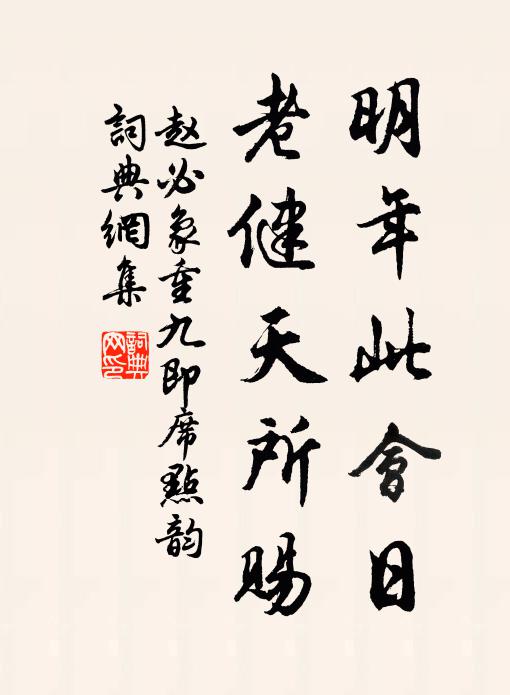 明年此會日
老健天所賜
赵必象重九即席點韵
詞典網集
詞典網印